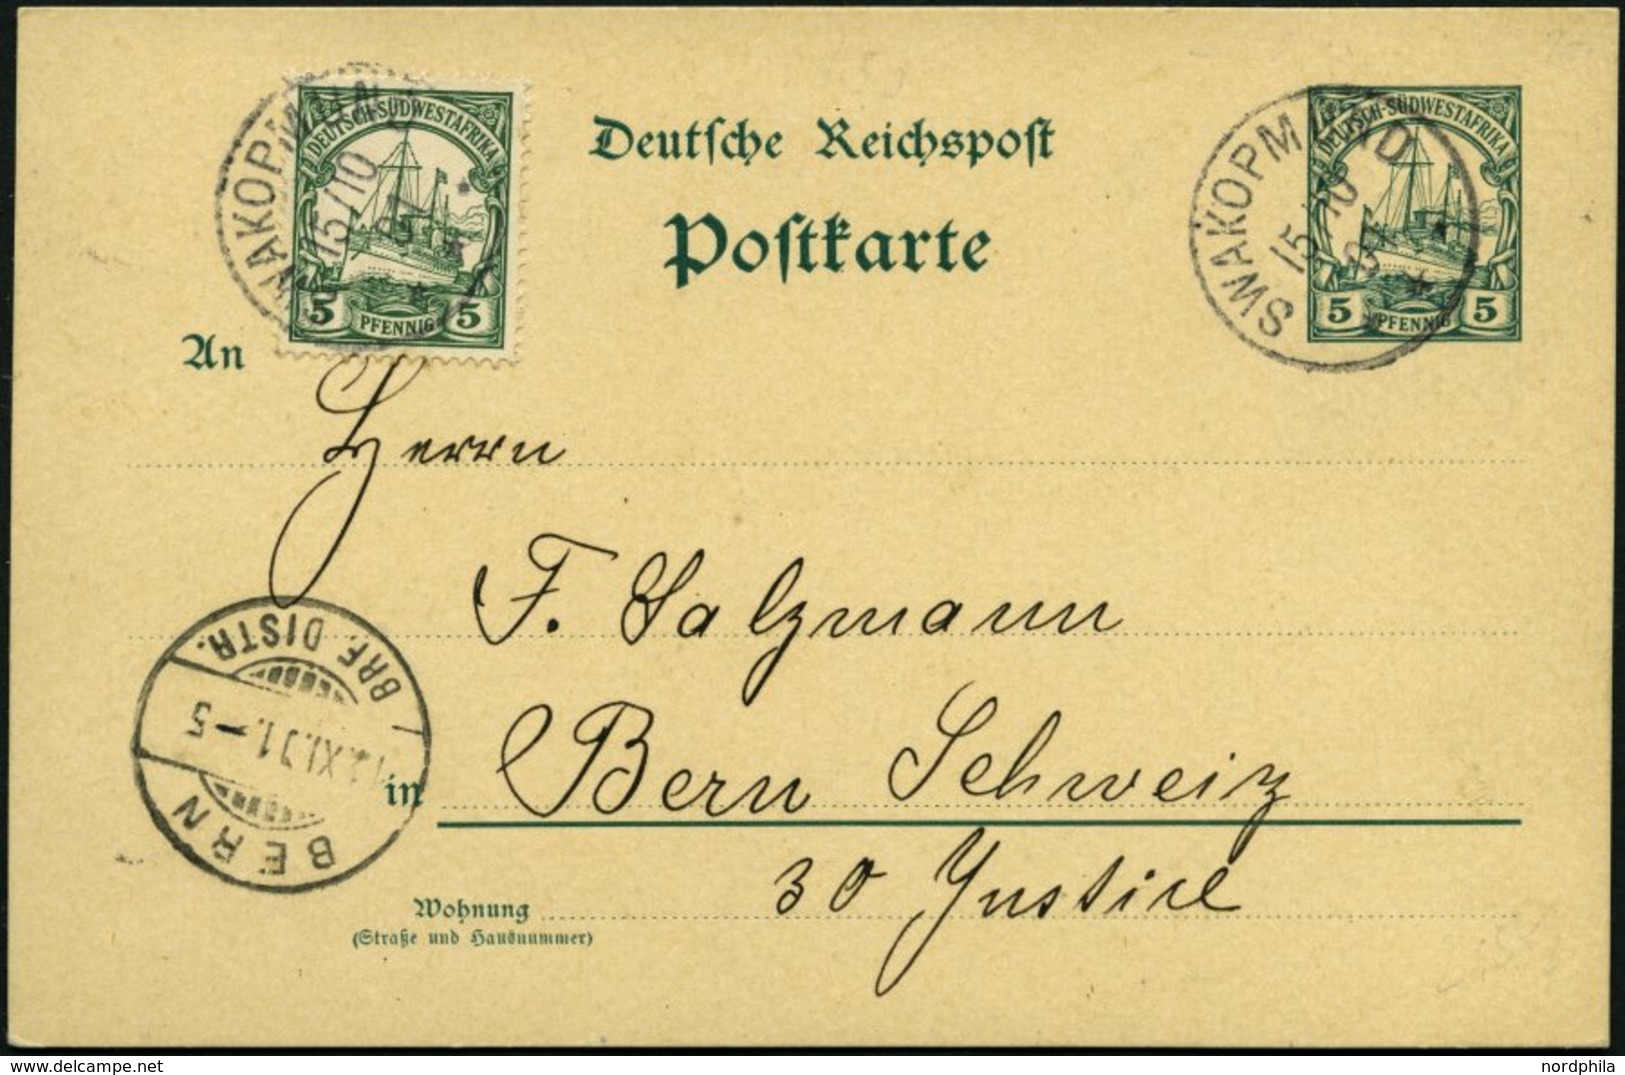 DEUTSCH-SÜDWESTAFRIKA
5 PFENNIG 5
SWAKOPMUND
15/10
01
Deutsche Reichspost
Postkarte
DEUTSCH-SÜDWESTAFRIKA
5 PFENNIG 5
SWAKOPMUND
15/10
01
An
Herrn
F. Salzmann
in Bern Schweiz
30 Justice
Wohnung
(Straße und Hausnummer)
BERN
XI.01.-5
BRF. DISTR.
nordphila